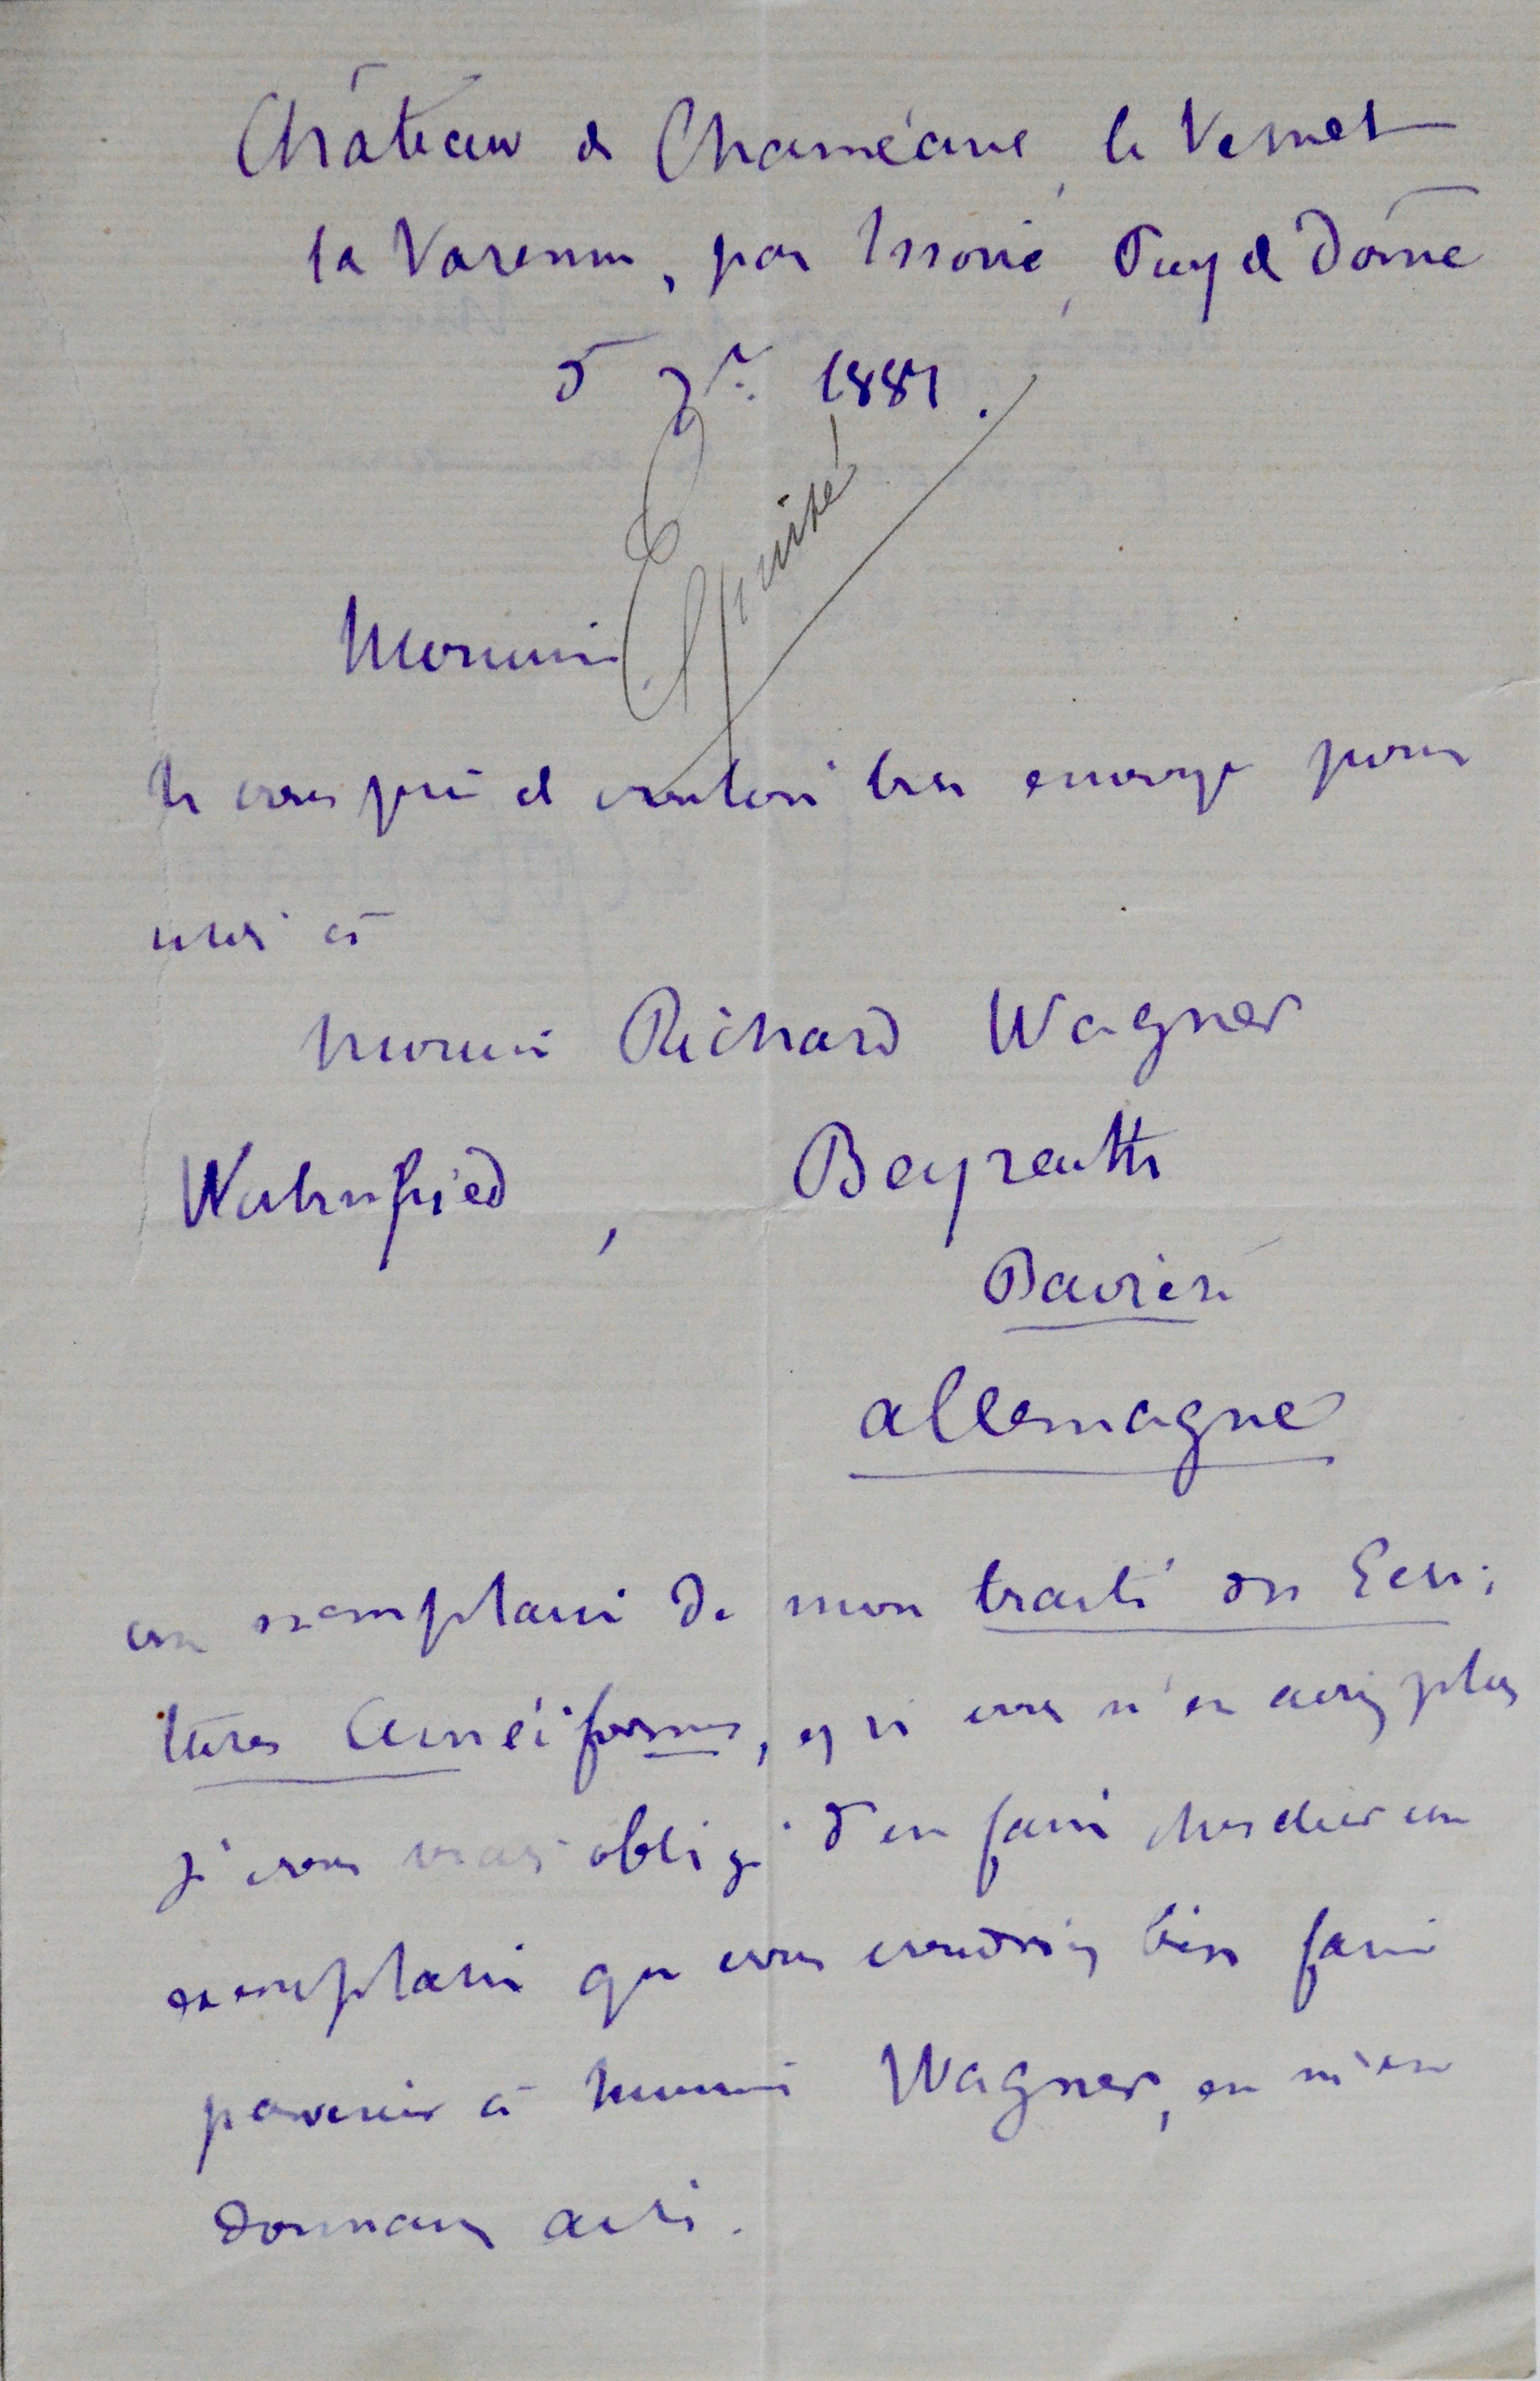 Château de Chaméane, le Vernet
la Varenne, par Issoire, Puy de Dôme
5 7r. 1881.
Épuisé
Monsieur
Je vous prie de vouloir bien envoyer pour
moi à
Monsieur Richard Wagner
Wahnfried, Beyreuth
Bavière
allemagne
un exemplaire de mon traité des Écri-
tures Cunéiformes, et si vous n'en aviez plus
je vous serais obligé d'en faire chercher un
exemplaire que vous voudriez bien faire
parvenir à Monsieur Wagner, en m'en
donnant avis.